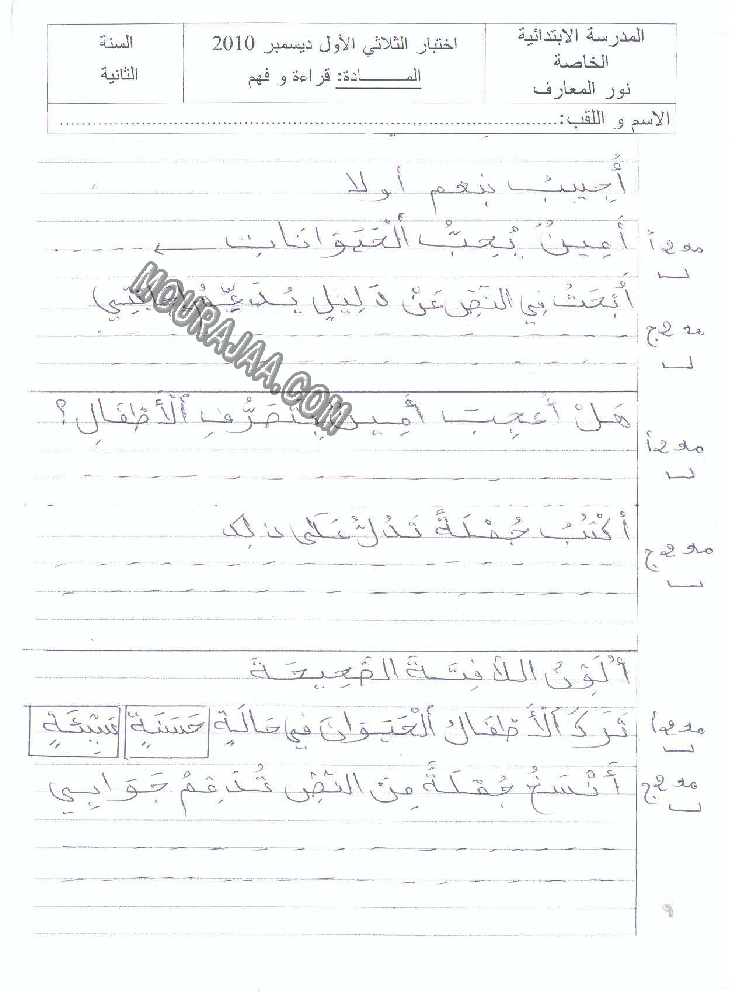 المدرسة الابتدائية الخاصة نور المعارف
اختبار الثلاثي الأول ديسمبر 2010
المــــــادة: قراءة و فهم
السنة الثانية
الاسم و اللقب:
أُجِيبُ بِنعم أو لا
أَمِينٌ يُحِبُّ ٱلْحَيَوَانَاتِ
مع2أ
أَبْحَثُ فِي النَّصِّ عَنْ دَلِيلٍ يُدَعِّمُ إِجَابَتِي
مع2ج
MOURAJAA.COM
هَلْ أُعْجِبَ أَمِينٌ بِتَصَرُّفِ ٱلْأَطْفَالِ؟
مع2أ
أَكْتُبُ جُمْلَةً تَدُلُّ عَلَى ذلِكَ
مع2ج
أُلَوِّنُ اللاَّفِتَةَ الصَّحِيحَةَ
تَرَكَ ٱلْأَطْفَالُ ٱلْحَيَوَانَ فِي حَالَةٍ حَسَنَةٍ سَيِّئَةٍ
مع2أ
أَنْسَخُ جُمْلَةً مِنَ النَّصِّ تُدَعِّمُ جَوَابِي
مع2ج